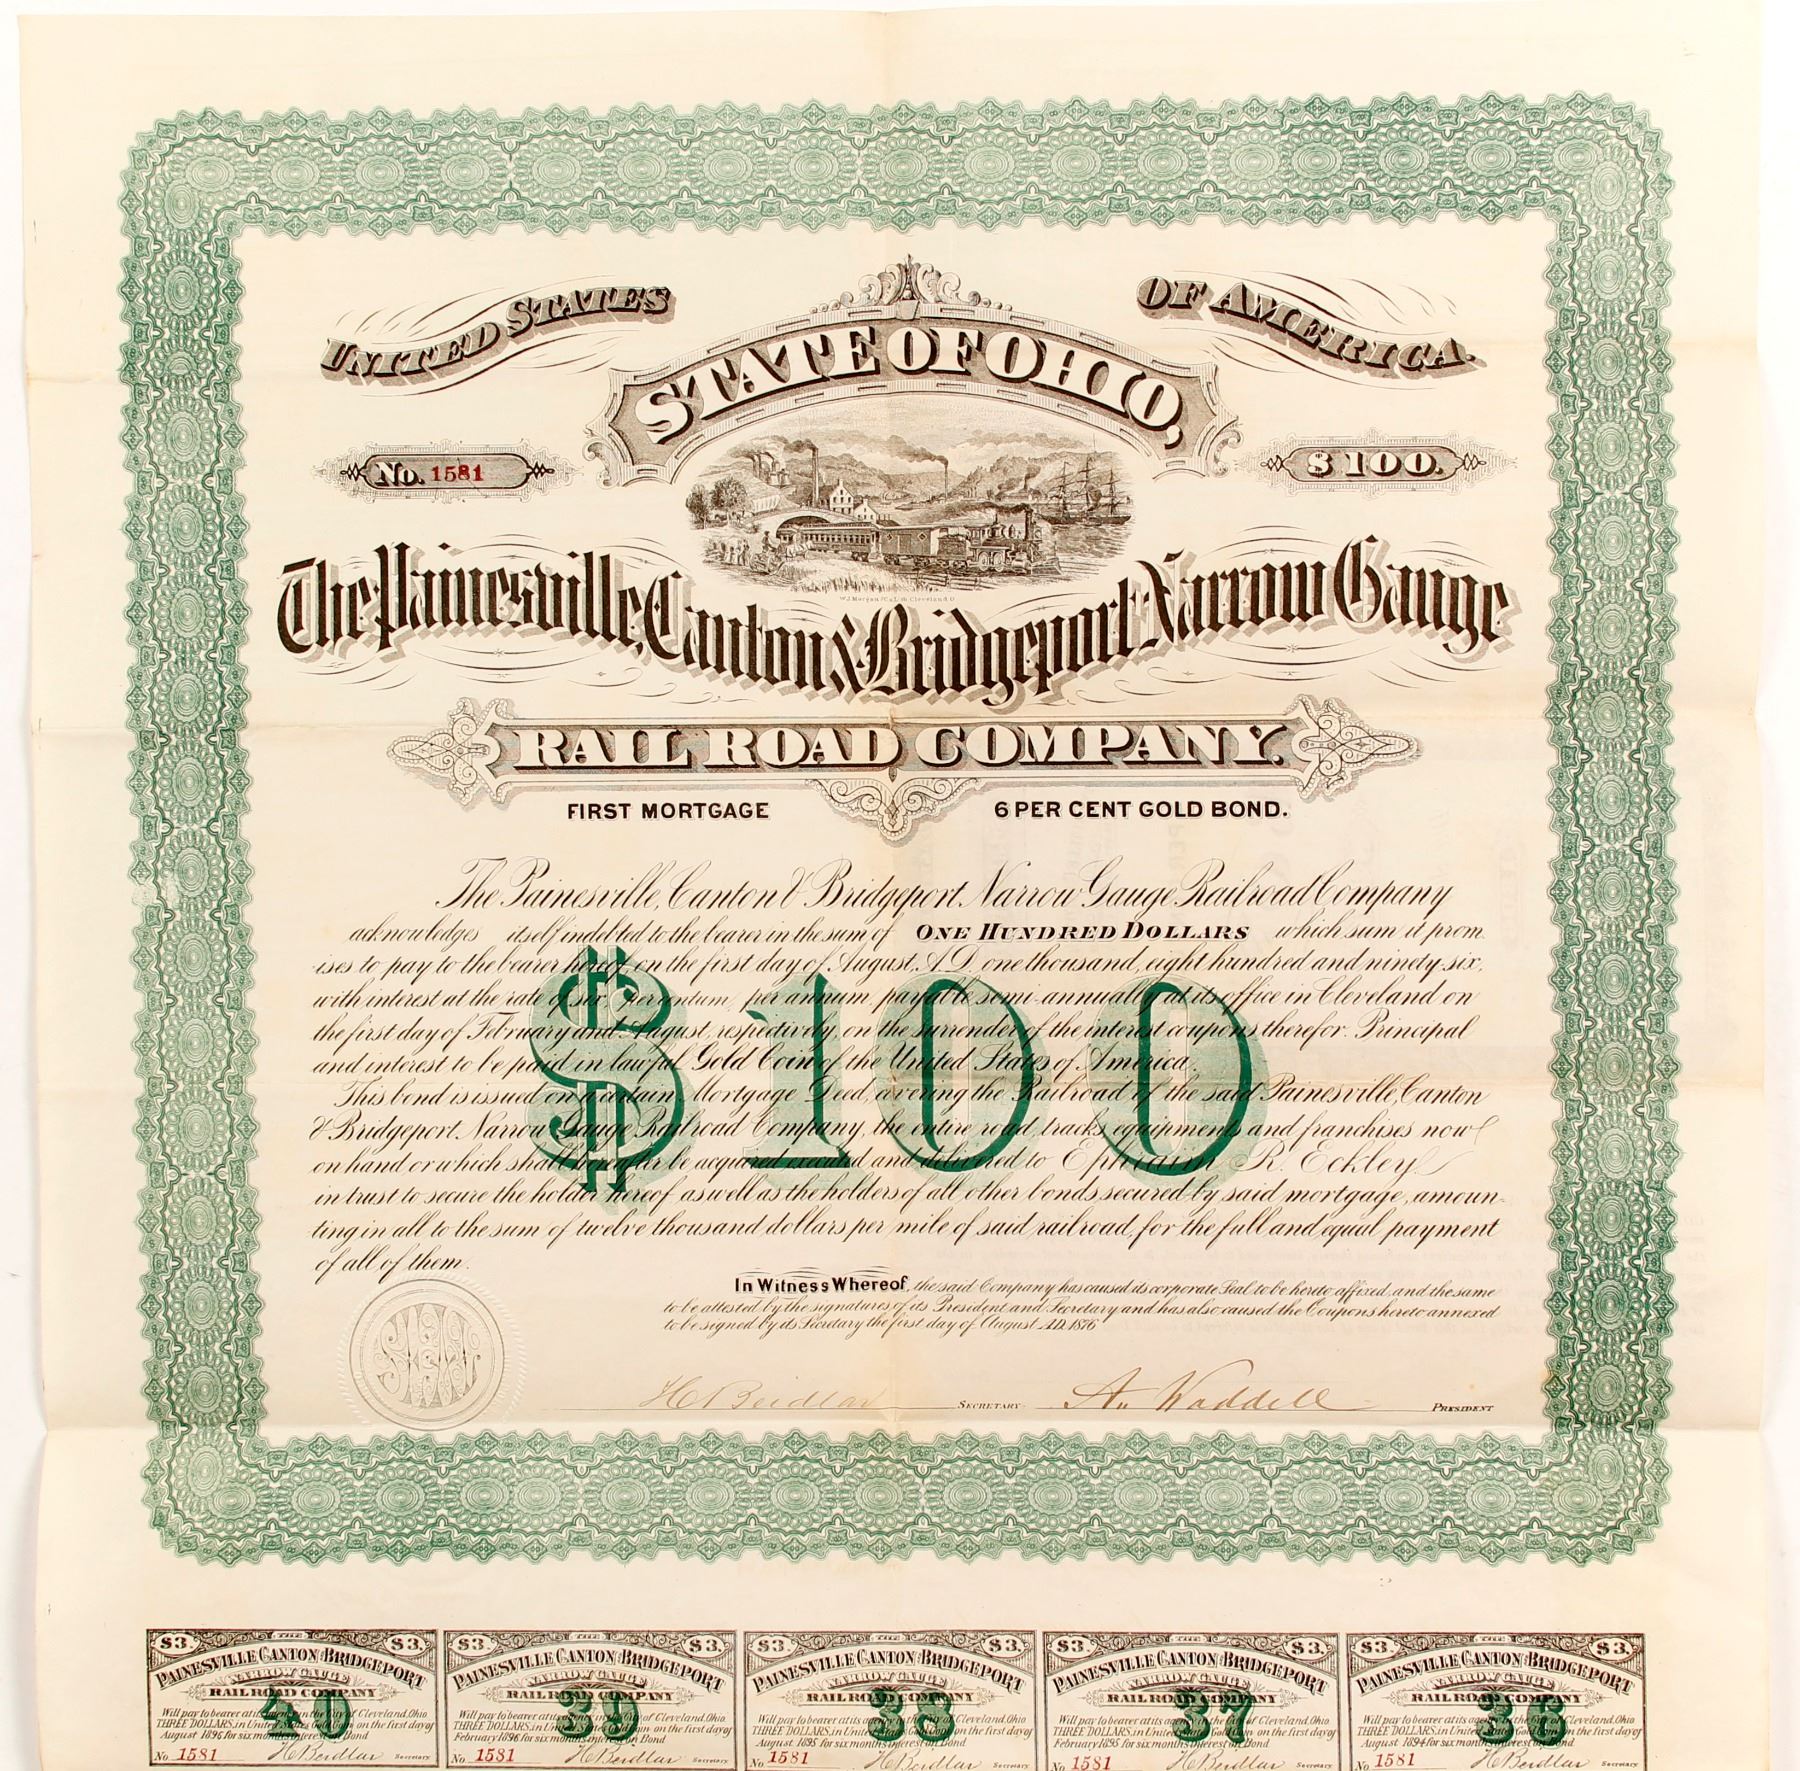 UNITED STATES OF AMERICA.
STATE OF OHIO,
No. 1581
$100.
W.J. Morgan & Co. Lith. Cleveland O.
The Painesville, Canton & Bridgeport Narrow Gauge
RAIL ROAD COMPANY.
FIRST MORTGAGE 6 PER CENT GOLD BOND.
The Painesville, Canton & Bridgeport Narrow Gauge Railroad Company
acknowledges itself indebted to the bearer in the sum of ONE HUNDRED DOLLARS which sum it prom
ises to pay to the bearer hereof, on the first day of August, A.D. one thousand, eight hundred and ninety-six,
with interest at the rate of six per centum, per annum, payable semi-annually at its office in Cleveland on
the first day of February and August, respectively, on the surrender of the interest coupons therefor. Principal
and interest to be paid in lawful Gold Coin of the United States of America.
This bond is issued on a certain Mortgage Deed, covering the Railroad of the said Painesville, Canton
& Bridgeport Narrow Gauge Railroad Company, the entire road, tracks, equipments and franchises now
on hand or which shall hereafter be acquired executed and delivered to Ephriaim R. Eckley
in trust to secure the holder hereof as well as the holders of all other bonds secured by said mortgage, amoun-
ting in all to the sum of twelve thousand dollars per mile of said railroad, for the full and equal payment
of all of them.
$100
In Witness Whereof, the said Company has caused its corporate Seal to be hereto affixed, and the same
to be attested by the signatures of its President and Secretary and has also caused the Coupons hereto annexed
to be signed by its Secretary the first day of August A.D. 1876
H Beidlar SECRETARY A. Waddell PRESIDENT
$3. THE $3.
PAINESVILLE CANTON & BRIDGEPORT
NARROW GAUGE
RAIL ROAD COMPANY
40
Will pay to bearer at its agency in the City of Cleveland, Ohio
THREE DOLLARS, in United States Gold Coin on the first day of
August 1896 for six months interest on Bond
No 1581 H Beidlar Secretary
$3. THE $3.
PAINESVILLE CANTON & BRIDGEPORT
NARROW GAUGE
RAIL ROAD COMPANY
39
Will pay to bearer at its agency in the City of Cleveland, Ohio
THREE DOLLARS, in United States Gold Coin on the first day of
February 1896 for six months interest on Bond
No 1581 H Beidlar Secretary
$3. THE $3.
PAINESVILLE CANTON & BRIDGEPORT
NARROW GAUGE
RAIL ROAD COMPANY
38
Will pay to bearer at its agency in the City of Cleveland, Ohio
THREE DOLLARS, in United States Gold Coin on the first day of
August 1895 for six months interest on Bond
No 1581 H Beidlar Secretary
$3. THE $3.
PAINESVILLE CANTON & BRIDGEPORT
NARROW GAUGE
RAIL ROAD COMPANY
37
Will pay to bearer at its agency in the City of Cleveland, Ohio
THREE DOLLARS, in United States Gold Coin on the first day of
February 1895 for six months interest on Bond
No 1581 H Beidlar Secretary
$3. THE $3.
PAINESVILLE CANTON & BRIDGEPORT
NARROW GAUGE
RAIL ROAD COMPANY
36
Will pay to bearer at its agency in the City of Cleveland, Ohio
THREE DOLLARS, in United States Gold Coin on the first day of
August 1894 for six months interest on Bond
No 1581 H Beidlar Secretary